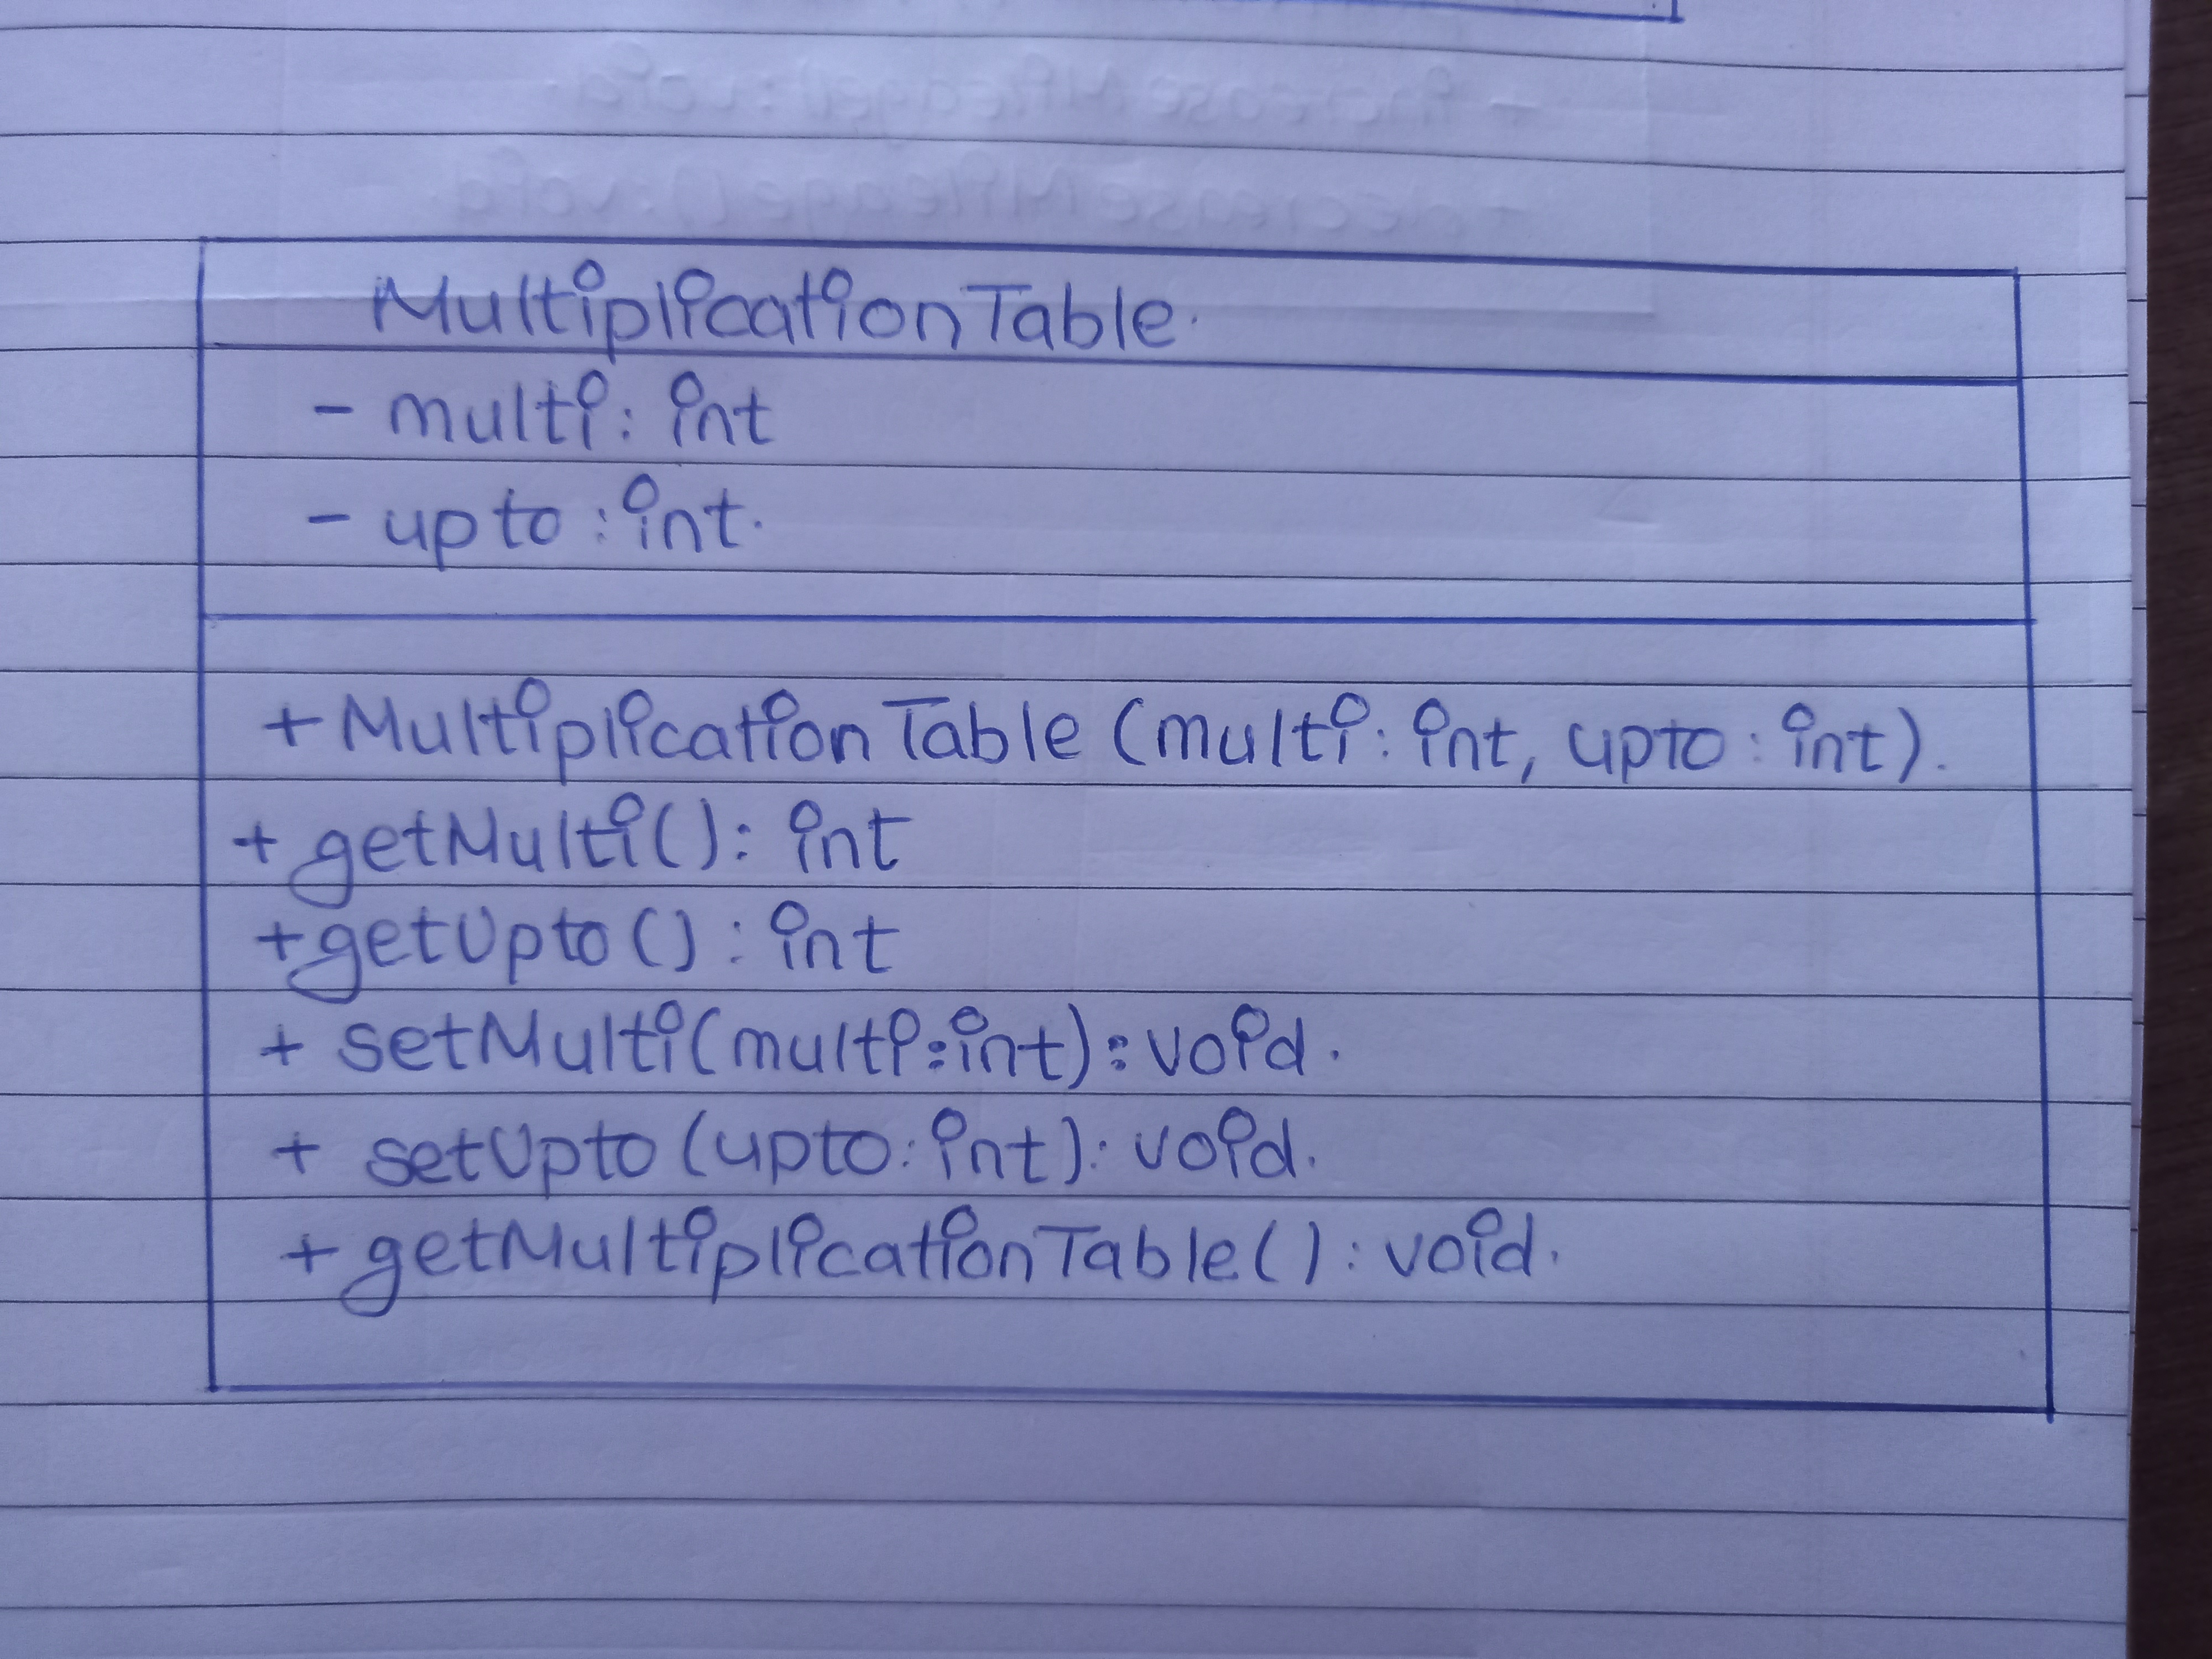 MultiplicationTable.
- multi: int
- upto : int.
+ MultiplicationTable (multi: int, upto : int).
+ getMulti(): int
+getUpto() : int
+ setMulti(multi:int): void.
+ setUpto (upto: int): void.
+ getMultiplicationTable() : void.